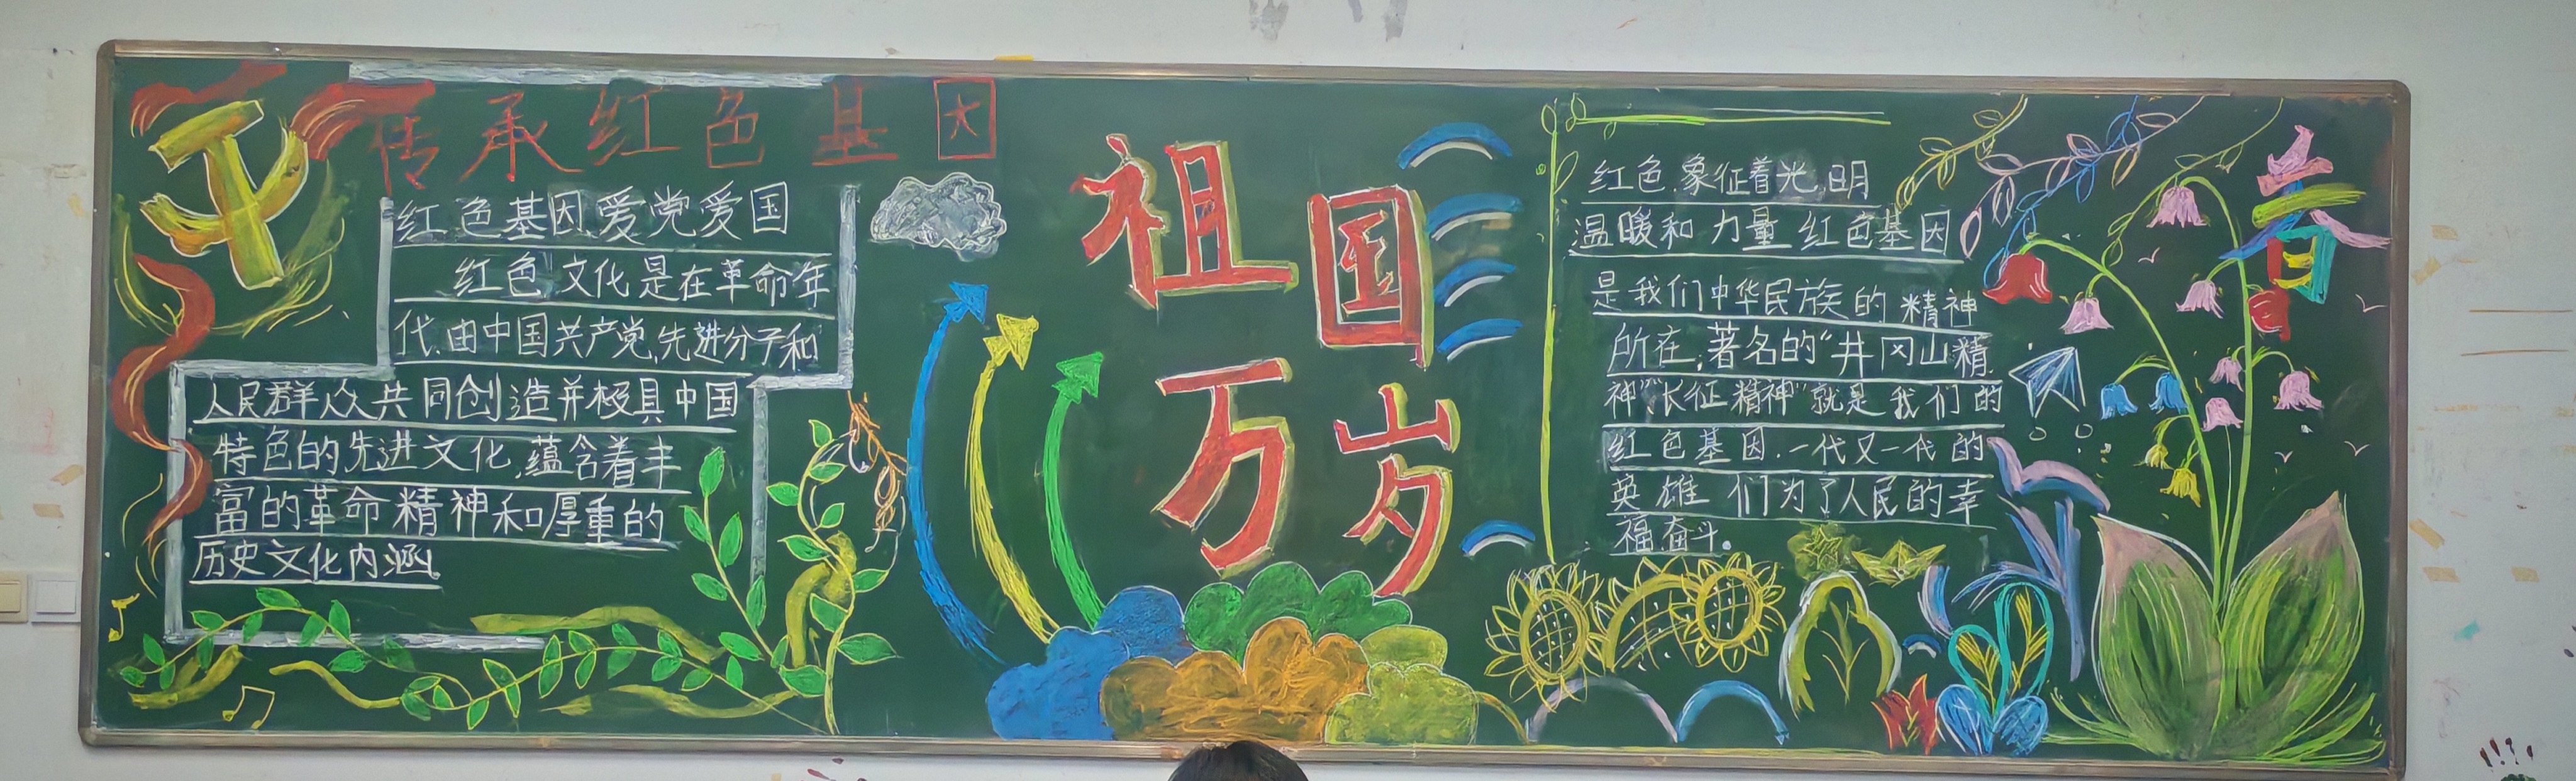 传承红色基因
红色基因,爱党爱国
红色文化是在革命年
代,由中国共产党,先进分子和
人民群众共同创造并极具中国
特色的先进文化,蕴含着丰
富的革命精神和厚重的
历史文化内涵
祖国
万岁
红色,象征着光明
温暖和力量 红色基因
是我们中华民族的精神
所在,著名的“井冈山精
神”“长征精神”就是我们的
红色基因.一代又一代的
英雄们为了人民的幸
福奋斗。
春